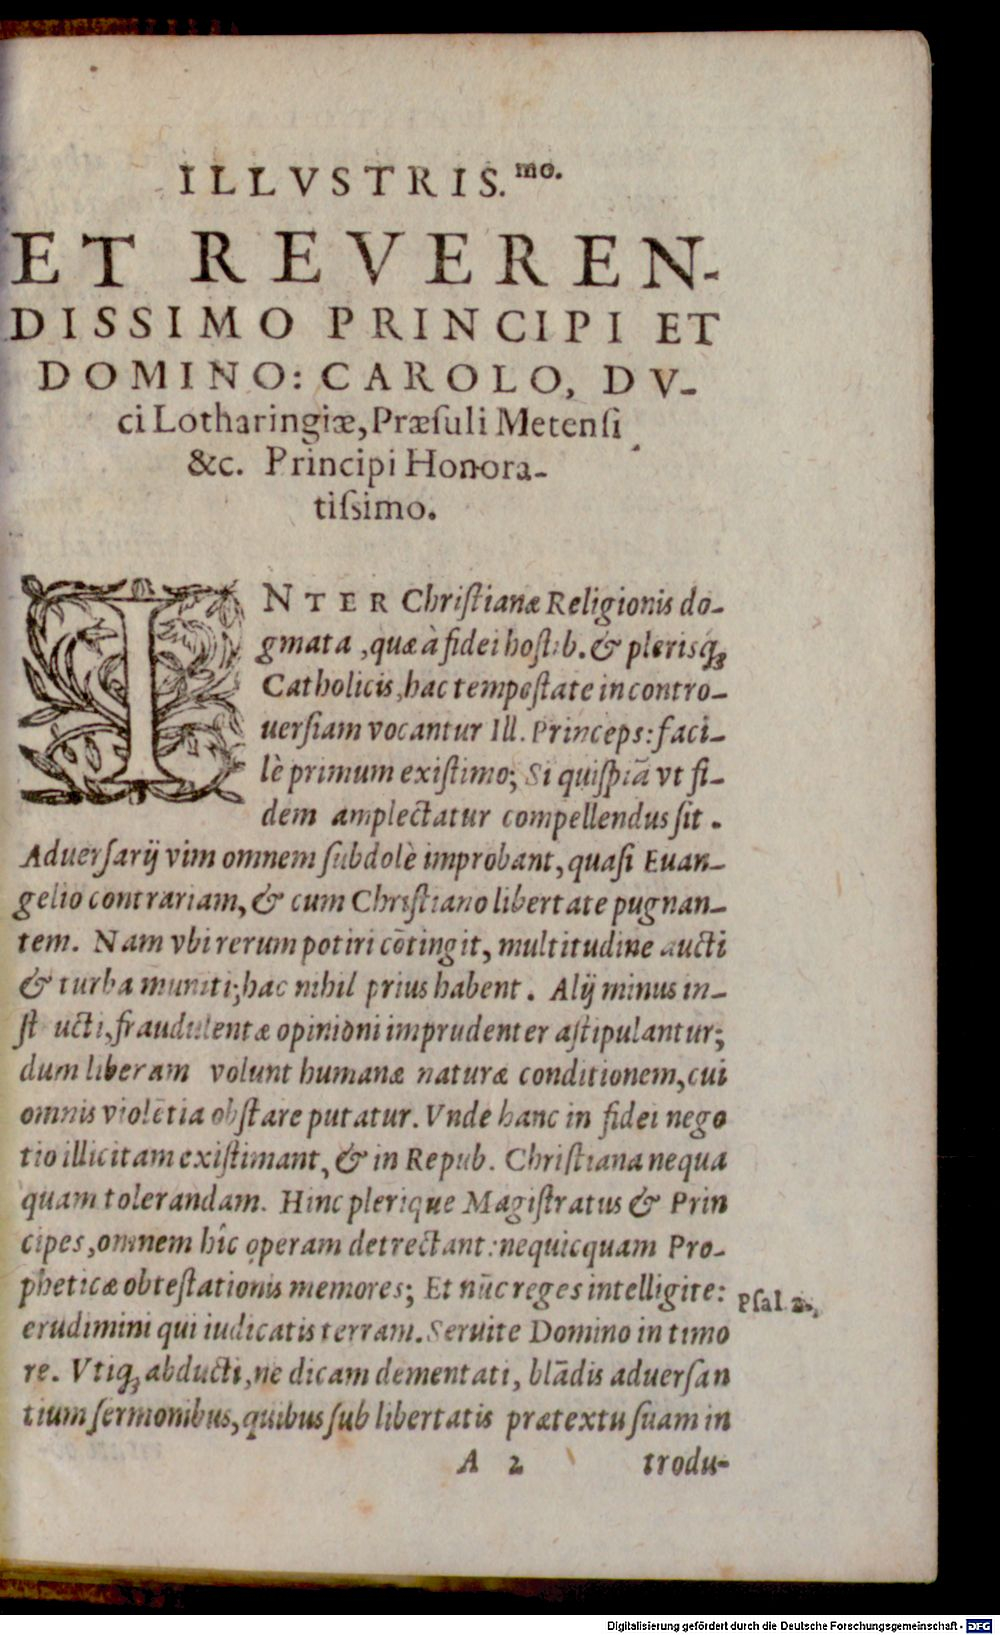 ILLVSTRIS.mo.
ET REVEREN-
DISSIMO PRINCIPI ET
DOMINO: CAROLO, DV-
ci Lotharingiæ, Præſuli Metenſi
&c. Principi Honora-
tiſsimo.
INTER Chriſtianæ Religionis do-
gmata, quæ à fidei hoſtib. & plerisq;
Catholicis, hac tempeſtate in contro-
uerſiam vocantur Ill. Princeps: faci-
lè primum exiſtimo; Si quiſpiã vt fi-
dem amplectatur compellendus ſit.
Aduerſarij vim omnem ſubdolè improbant, quaſi Euan-
gelio contrariam, & cum Chriſtiano libertate pugnan-
tem. Nam vbi rerum potiri cõtingit, multitudine aucti
& turba muniti; hac nihil prius habent. Alij minus in-
ſt ucti, fraudulentæ opinioni imprudenter aſtipulantur;
dum liberam volunt humanæ naturæ conditionem, cui
omnis violẽtia obſtare putatur. Vnde hanc in fidei nego
tio illicitam exiſtimant, & in Repub. Chriſtiana nequa
quam tolerandam. Hinc plerique Magiſtratus & Prin
cipes, omnem hîc operam detrectant: nequicquam Pro-
pheticæ obteſtationis memores; Et nũc reges intelligite:
erudimini qui iudicatis terram. Seruite Domino in timo
re. Vtiq; abducti, ne dicam dementati, blãdis aduerſan
tium ſermonibus, quibus ſub libertatis prætextu ſuam in
Pſal. 2.
A 2 trodu-
Digitalisierung gefördert durch die Deutsche Forschungsgemeinschaft - DFG